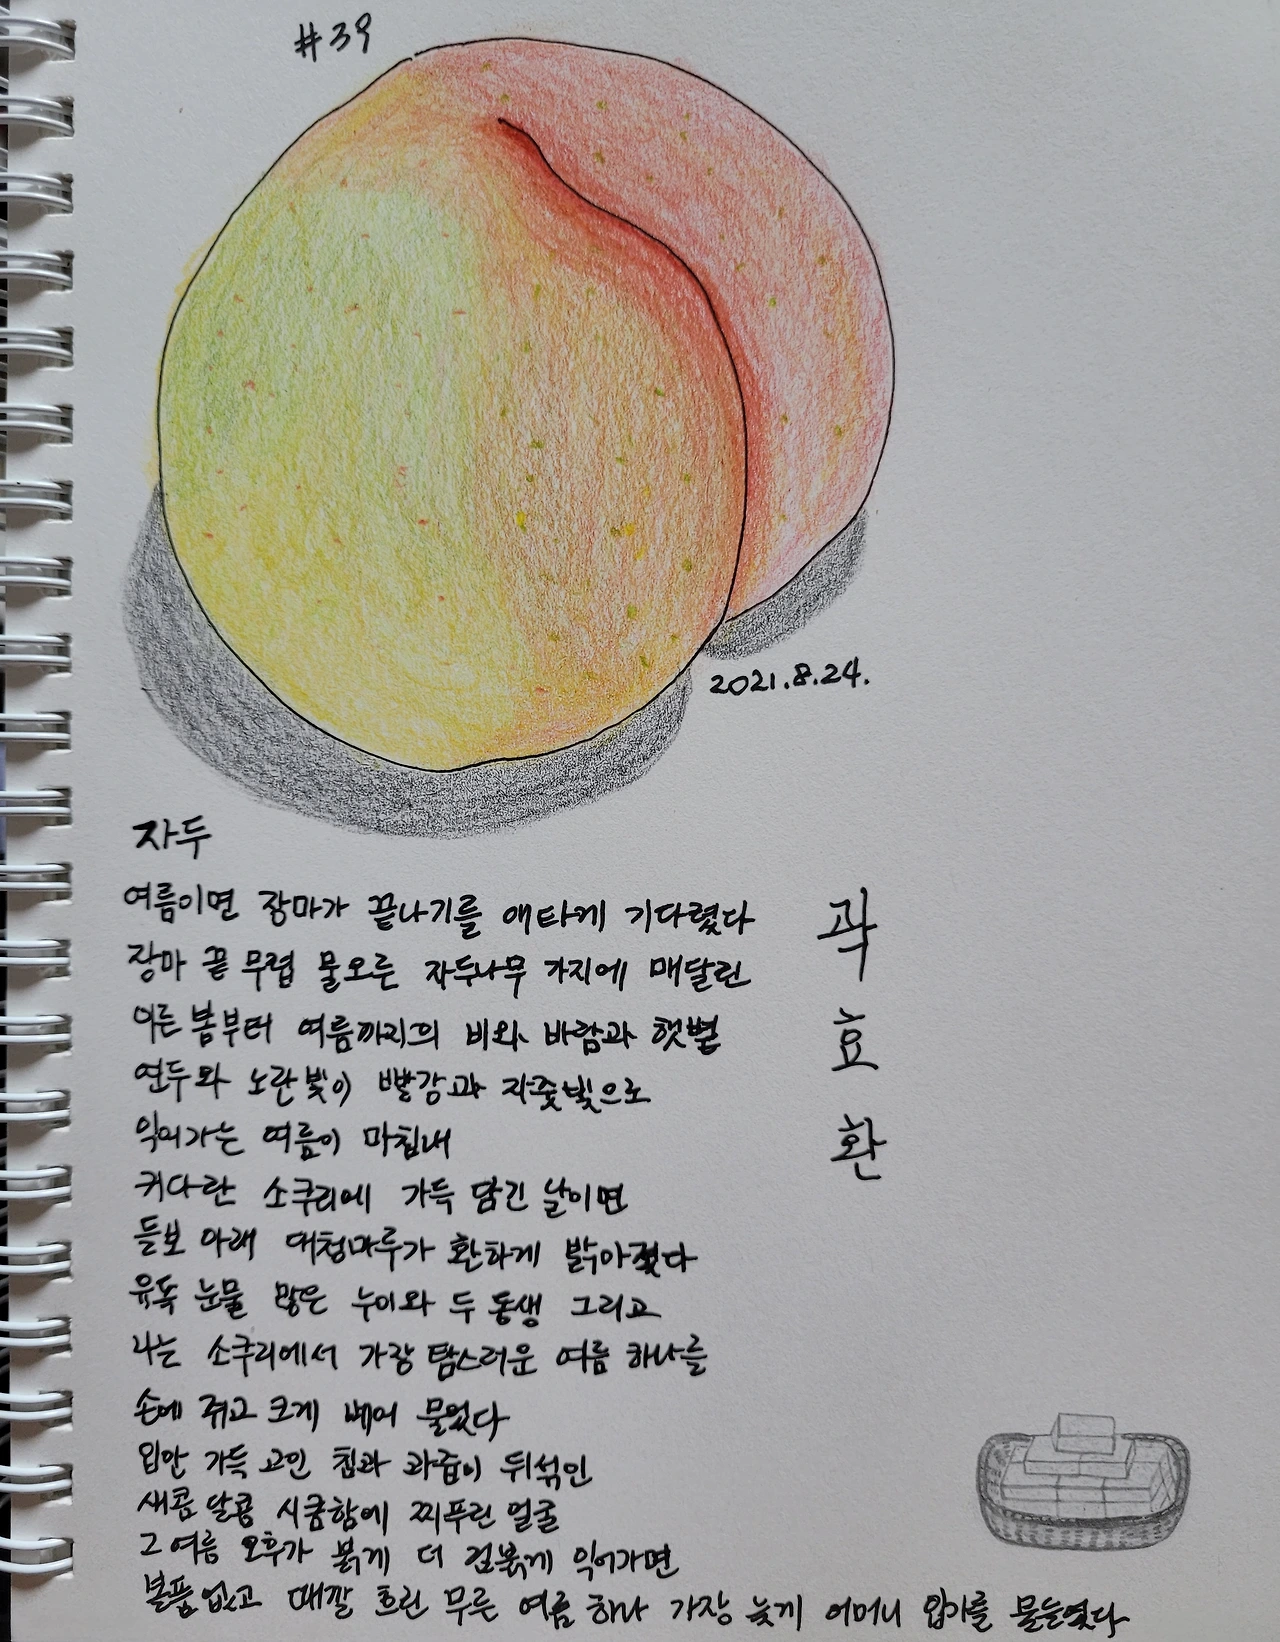 #39
2021.8.24.
자두
곽효환
여름이면 장마가 끝나기를 애타게 기다렸다
장마 끝 무렵 물오른 자두나무 가지에 매달린
이른 봄부터 여름까지의 비와 바람과 햇볕
연두와 노란 빛이 빨강과 자줏빛으로
익어가는 여름이 마침내
커다란 소쿠리에 가득 담긴 날이면
들보 아래 대청마루가 환하게 밝아졌다
유독 눈물 많은 누이와 두 동생 그리고
나는 소쿠리에서 가장 탐스러운 여름 하나를
손에 쥐고 크게 베어 물었다
입안 가득 고인 침과 과즙이 뒤섞인
새콤 달콤 시큼함에 찌푸린 얼굴
그 여름 오후가 붉게 더 검붉게 익어가면
볼품없고 때깔 흐린 무른 여름 하나 가장 늦게 어머니 입가를 물들였다